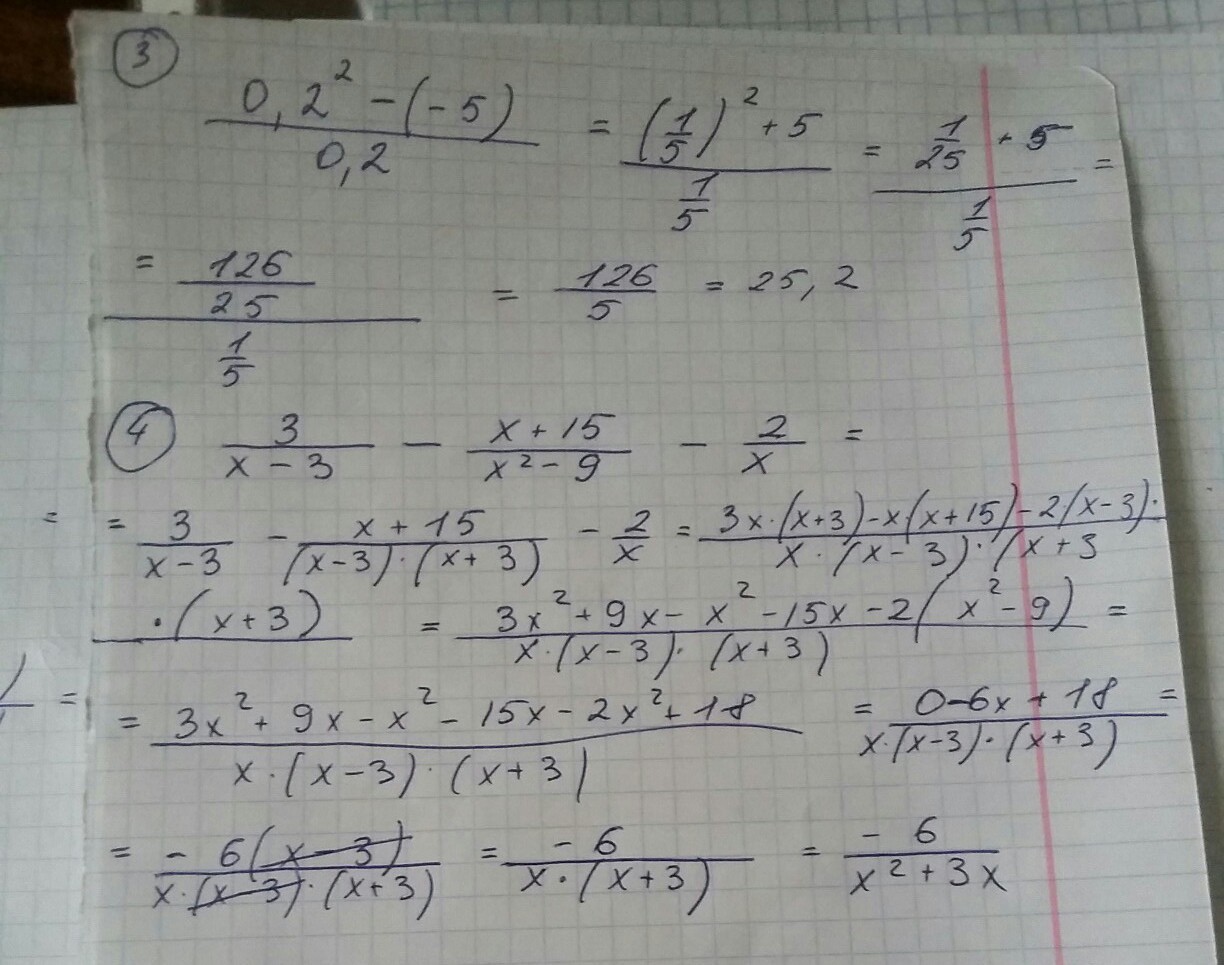 ③
(0,2² - (-5))/(0,2) = ((1/5)² + 5)/(1/5) = (1/25 + 5)/(1/5) =
= (126/25)/(1/5) = 126/5 = 25,2
④ 3/(x - 3) - (x + 15)/(x² - 9) - 2/x =
= = 3/(x-3) - (x + 15)/((x-3)·(x+3)) - 2/x = (3x·(x+3)-x(x+15)-2(x-3)·)/(x·(x-3)·(x+3
·(x+3) = (3x²+9x-x²-15x-2(x²-9))/(x·(x-3)·(x+3)) =
= = (3x²+9x-x²-15x-2x²+18)/(x·(x-3)·(x+3)) = (0-6x+18)/(x·(x-3)·(x+3)) =
= (-6(x-3))/(x·(x-3)·(x+3)) = (-6)/(x·(x+3)) = (-6)/(x²+3x)